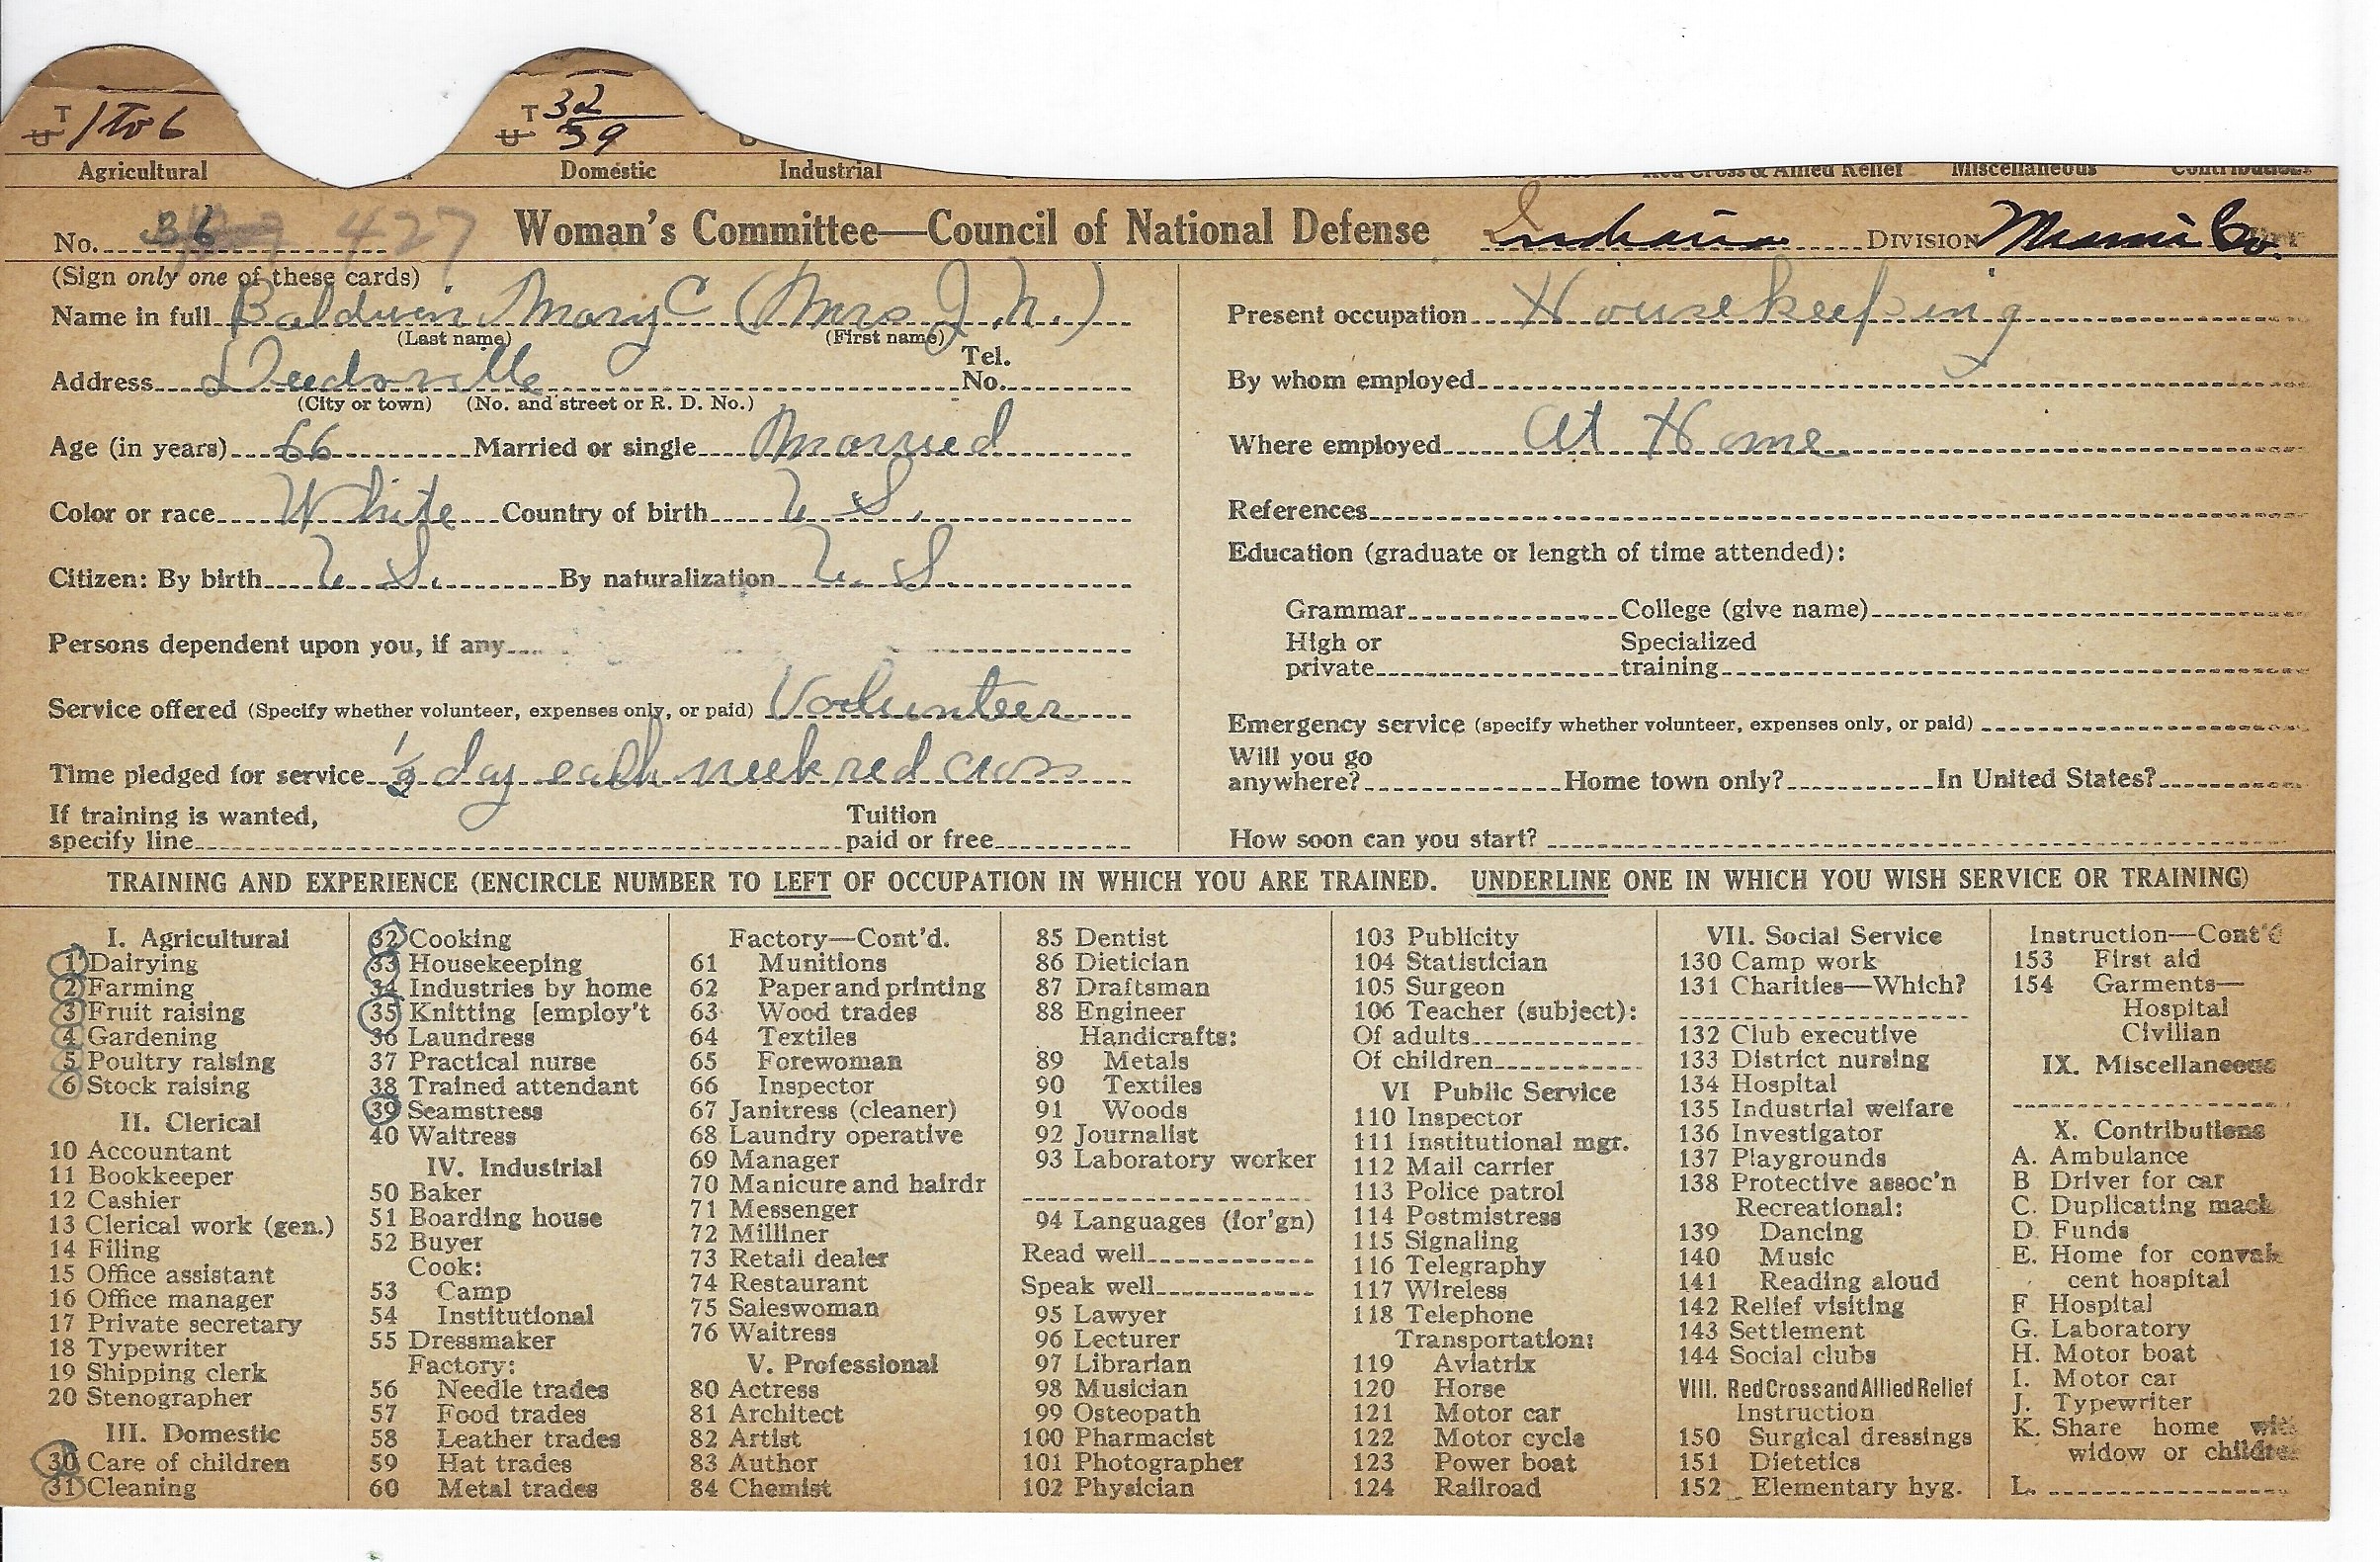 T U 1 to 6
T U 32 39
Agricultural Domestic Industrial Red Cross & Allied Relief Miscellaneous Contributions
No. B6 427 Woman's Committee—Council of National Defense Indiana DIVISION Miami Co.
(Sign only one of these cards)
Name in full Baldwin Mary C (Mrs J. N.)
(Last name) (First name)
Address Deedsville Tel. No.
(City or town) (No. and street or R. D. No.)
Age (in years) 66 Married or single Married
Color or race White Country of birth U S.
Citizen: By birth U S. By naturalization U. S.
Persons dependent upon you, if any
Service offered (Specify whether volunteer, expenses only, or paid) Volunteer
Time pledged for service 1/2 day each week red cross
If training is wanted, specify line Tuition paid or free
Present occupation Housekeeping
By whom employed
Where employed At Home
References
Education (graduate or length of time attended):
Grammar College (give name)
High or private Specialized training
Emergency service (specify whether volunteer, expenses only, or paid)
Will you go anywhere? Home town only? In United States?
How soon can you start?
TRAINING AND EXPERIENCE (ENCIRCLE NUMBER TO LEFT OF OCCUPATION IN WHICH YOU ARE TRAINED. UNDERLINE ONE IN WHICH YOU WISH SERVICE OR TRAINING)
I. Agricultural
1 Dairying
2 Farming
3 Fruit raising
4 Gardening
5 Poultry raising
6 Stock raising
II. Clerical
10 Accountant
11 Bookkeeper
12 Cashier
13 Clerical work (gen.)
14 Filing
15 Office assistant
16 Office manager
17 Private secretary
18 Typewriter
19 Shipping clerk
20 Stenographer
III. Domestic
30 Care of children
31 Cleaning
32 Cooking
33 Housekeeping
34 Industries by home
35 Knitting [employ't
36 Laundress
37 Practical nurse
38 Trained attendant
39 Seamstress
40 Waitress
IV. Industrial
50 Baker
51 Boarding house
52 Buyer
Cook:
53 Camp
54 Institutional
55 Dressmaker
Factory:
56 Needle trades
57 Food trades
58 Leather trades
59 Hat trades
60 Metal trades
Factory—Cont'd.
61 Munitions
62 Paper and printing
63 Wood trades
64 Textiles
65 Forewoman
66 Inspector
67 Janitress (cleaner)
68 Laundry operative
69 Manager
70 Manicure and hairdr
71 Messenger
72 Milliner
73 Retail dealer
74 Restaurant
75 Saleswoman
76 Waitress
V. Professional
80 Actress
81 Architect
82 Artist
83 Author
84 Chemist
85 Dentist
86 Dietician
87 Draftsman
88 Engineer
Handicrafts:
89 Metals
90 Textiles
91 Woods
92 Journalist
93 Laboratory worker
94 Languages (for'gn)
Read well
Speak well
95 Lawyer
96 Lecturer
97 Librarian
98 Musician
99 Osteopath
100 Pharmacist
101 Photographer
102 Physician
103 Publicity
104 Statistician
105 Surgeon
106 Teacher (subject):
Of adults
Of children
VI Public Service
110 Inspector
111 Institutional mgr.
112 Mail carrier
113 Police patrol
114 Postmistress
115 Signaling
116 Telegraphy
117 Wireless
118 Telephone
Transportation:
119 Aviatrix
120 Horse
121 Motor car
122 Motor cycle
123 Power boat
124 Railroad
VII. Social Service
130 Camp work
131 Charities—Which?
132 Club executive
133 District nursing
134 Hospital
135 Industrial welfare
136 Investigator
137 Playgrounds
138 Protective assoc'n
Recreational:
139 Dancing
140 Music
141 Reading aloud
142 Relief visiting
143 Settlement
144 Social clubs
VIII. Red Cross and Allied Relief
Instruction
150 Surgical dressings
151 Dietetics
152 Elementary hyg.
Instruction—Cont'd
153 First aid
154 Garments—
Hospital
Civilian
IX. Miscellaneous
X. Contributions
A. Ambulance
B Driver for car
C. Duplicating mach
D. Funds
E. Home for convales
cent hospital
F Hospital
G. Laboratory
H. Motor boat
I. Motor car
J. Typewriter
K. Share home with
widow or children
L.